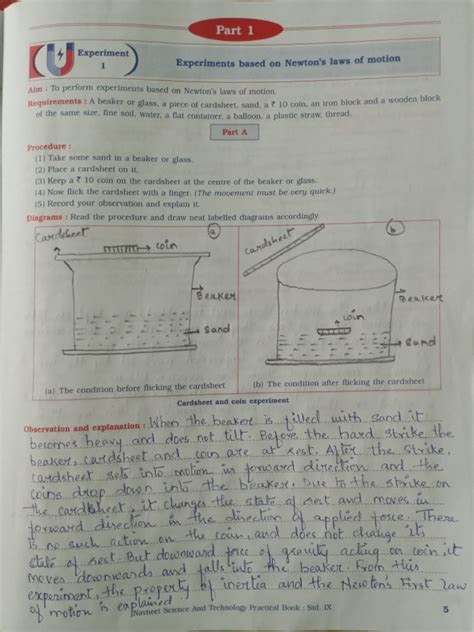 Part 1
Experiment
1
Experiments based on Newton's laws of motion
Aim : To perform experiments based on Newton's laws of motion.
Requirements : A beaker or glass, a piece of cardsheet, sand, a ₹ 10 coin, an iron block and a wooden block
of the same size, fine soil, water, a flat container, a balloon, a plastic straw, thread.
Part A
Procedure :
(1) Take some sand in a beaker or glass.
(2) Place a cardsheet on it.
(3) Keep a ₹ 10 coin on the cardsheet at the centre of the beaker or glass.
(4) Now flick the cardsheet with a finger. (The movement must be very quick.)
(5) Record your observation and explain it.
Diagrams : Read the procedure and draw neat labelled diagrams accordingly.
Cardsheet
coin
a
Beaker
Sand
(a) The condition before flicking the cardsheet
cardsheet
b
Beaker
coin
Sand
(b) The condition after flicking the cardsheet
Cardsheet and coin experiment
Observation and explanation : When the beaker is filled with sand it
becomes heavy and does not tilt. Before the hard strike the
beaker, cardsheet and coin are at rest. After the strike,
cardsheet sets into motion in forward direction and the
coins drop down into the beaker. Due to the strike on
the cardsheet, it changes the state of rest and moves in
forward direction in the direction of applied force. There
is no such action on the coin, and does not change its
state of rest. But downward force of gravity acting on coin, it
moves downwards and falls into the beaker. From this
experiment, the property of inertia and the Newton's First law
of motion is explained.
Navneet Science And Technology Practical Book : Std. IX
5